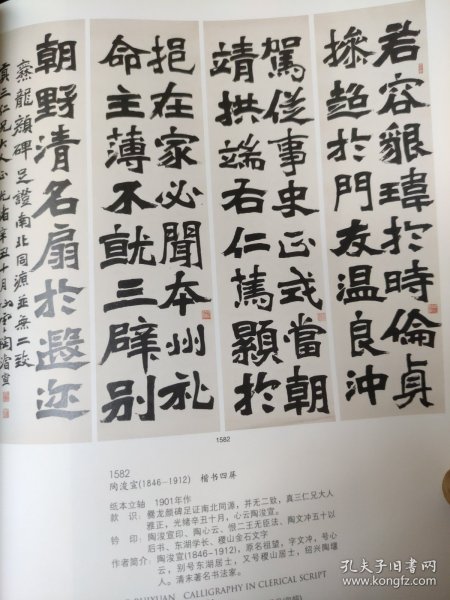 若容貌瑋於時倫貞
操超於門友温良沖
駕從事史正式當朝
靖拱端右仁篤顯於
挹在家必聞本州礼
命主薄不就三辟别
朝野清名扇於遐迩
爨龍顏碑足證南北同源並無二致
真三仁兄大人正光緒辛丑十月心雲陶濬宣
1582
1582
陶浚宣(1846-1912) 楷书四屏
纸本立轴 1901年作
款 识：爨龙颜碑足证南北同源，并无二致，真三仁兄大人
雅正，光绪辛丑十月，心云陶浚宣。
钤 印：陶浚宣印、陶心云、恨二王无臣法、陶文冲五十以
后书、东湖学长、稷山金石文字
作者简介：陶浚宣(1846-1912)，原名祖望，字文冲，号心
云，别号东湖居士，又号稷山居士，绍兴陶堰
人。清末著名书法家。
RUIYUAN CALLIGRAPHY IN CLERICAL SCRIPT
孔夫子旧书网